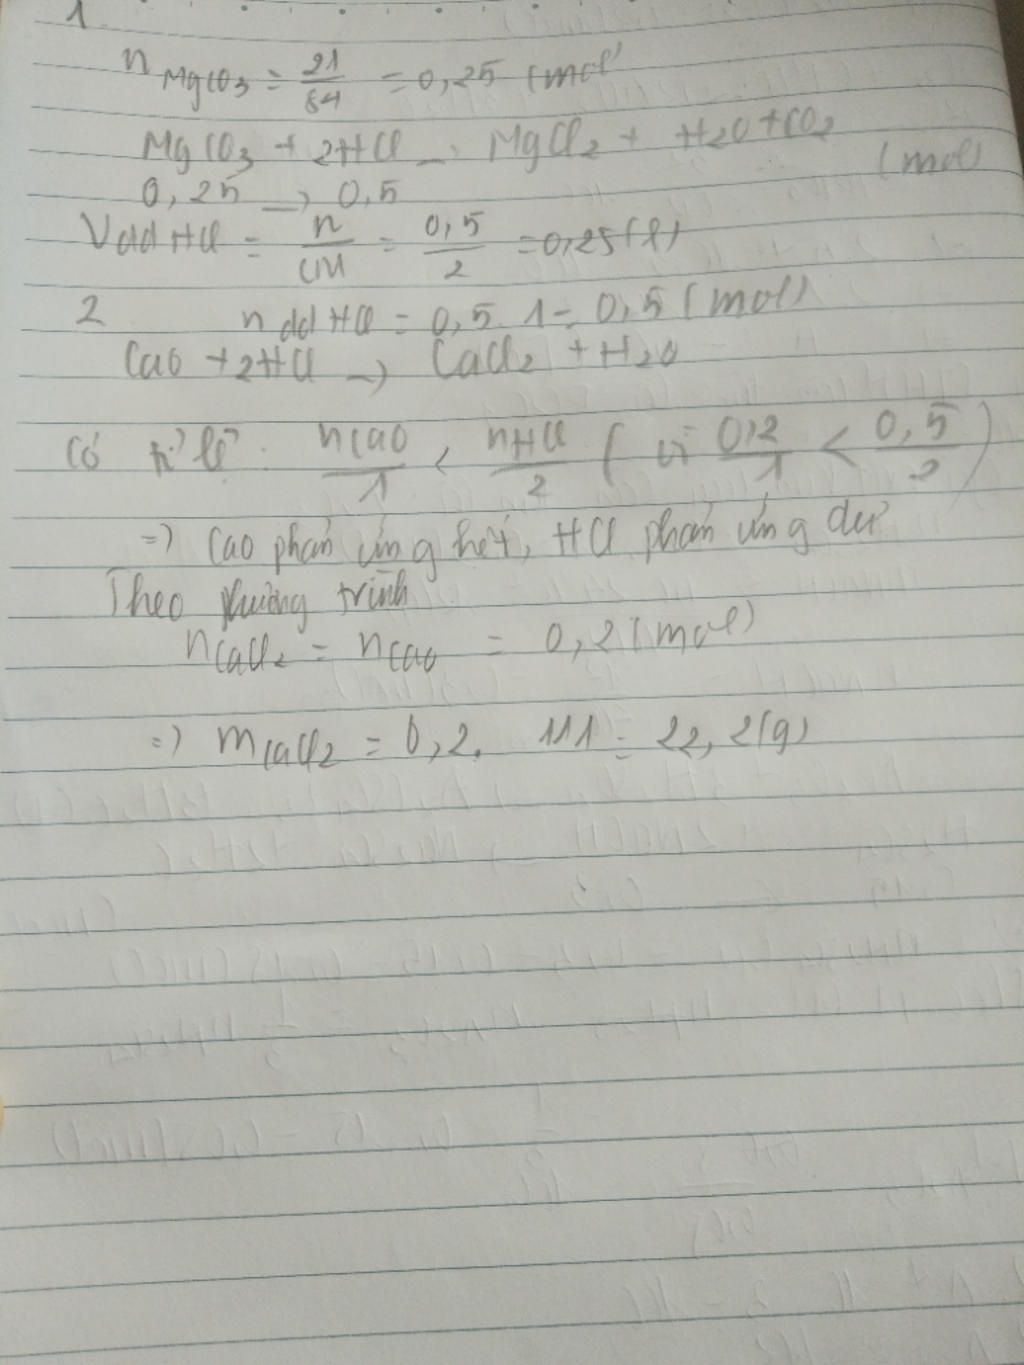 1
n MgCO3 = 21/84 = 0,25 (mol)
MgCO3 + 2HCl → MgCl2 + H2O + CO2
0,25 → 0,5 (mol)
Vdd HCl = n/CM = 0,5/2 = 0,25 (l)
2 n dd HCl = 0,5. 1 = 0,5 (mol)
CaO + 2HCl → CaCl2 + H2O
Có tỉ lệ: nCaO/1 < nHCl/2 (vì 0,2/1 < 0,5/2)
=> CaO phản ứng hết, HCl phản ứng dư
Theo phương trình
nCaCl2 = nCaO = 0,2 (mol)
=> mCaCl2 = 0,2. 111 = 22,2 (g)